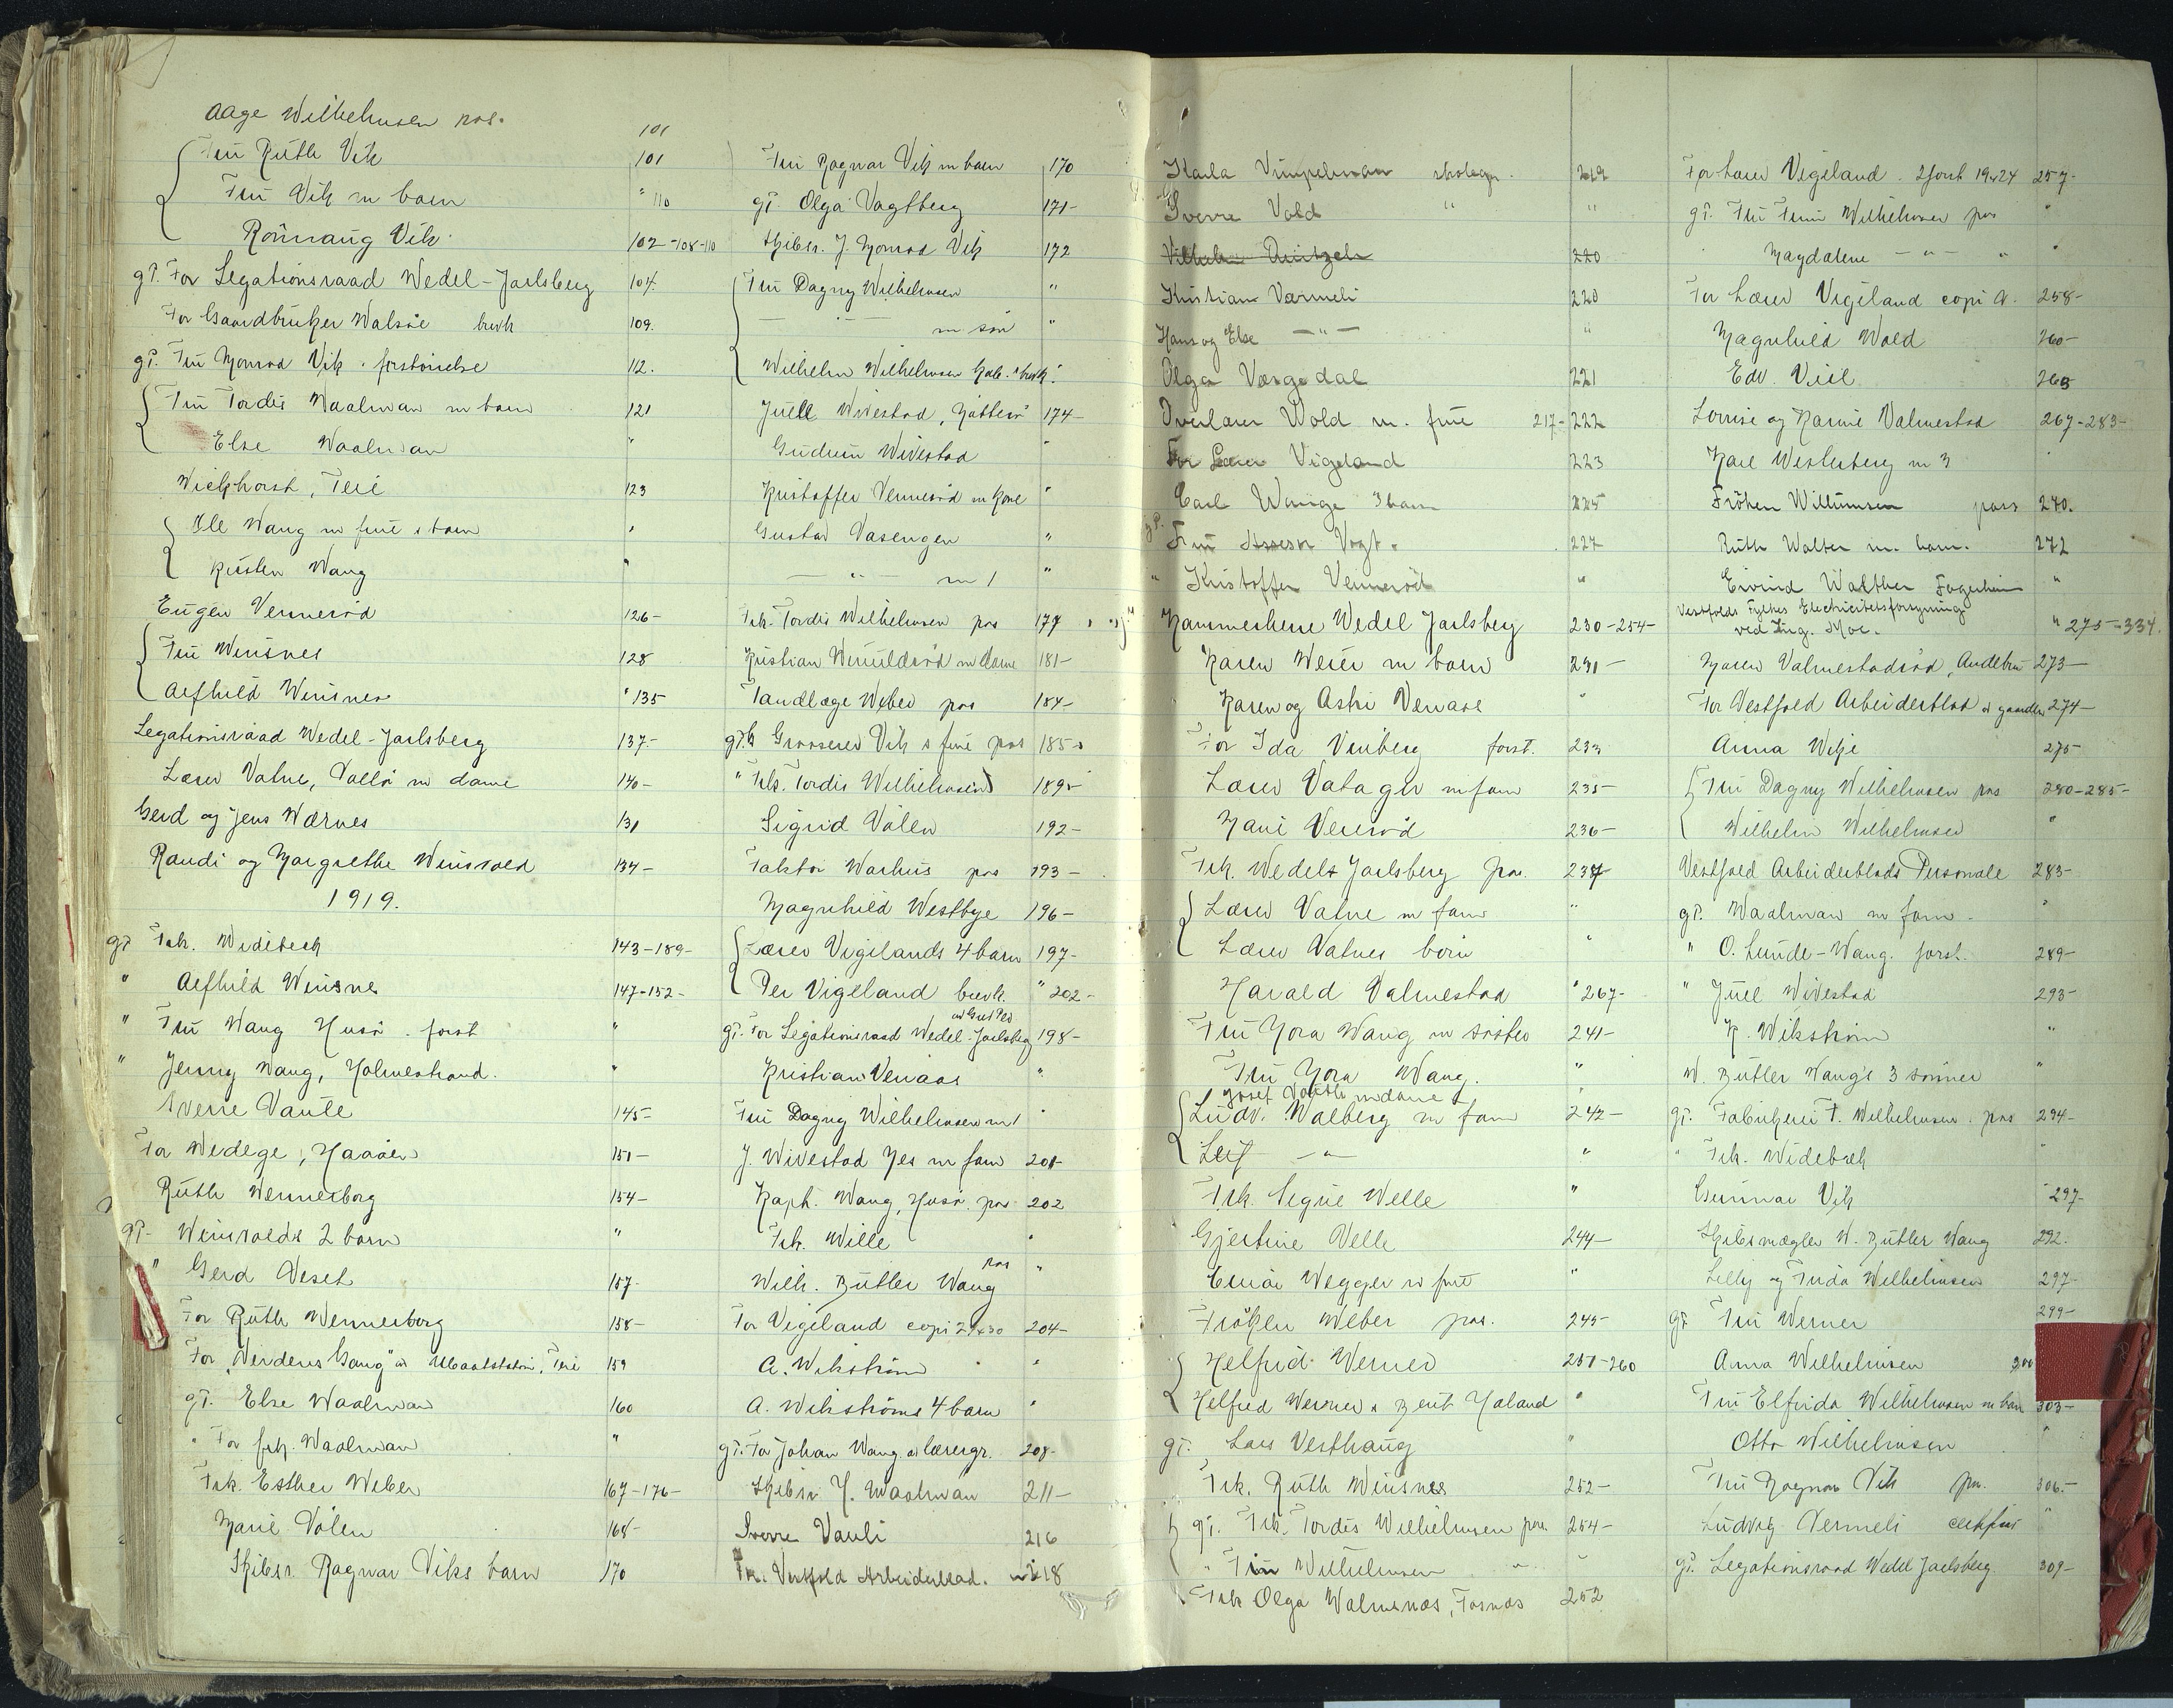 Aage Wilhelmsen pos. 101
Fru Ruth Vik 101
Fru Vik m barn " 110
Rönnaug Vik 102-108-110
gP. For Legationsraad Wedel-Jarlsberg 104.
For Gaardbruker Walsöe brevk 109.
gP. Fru Monrad Vik . forstörrelse 112.
Fru Tordis Waalman m barn 121
Else Waalman "
Wiekhorst, Teie 123
Ole Wang m frue & barn "
Kirsten Wang "
Eugen Venneröd 126-
Fru Winsnes 128
Alfhild Winsnes " 135
Legationsraad Wedel-Jarlsberg 137.-
Lærer Vatne, Vallö m dame 140-
Gerd og Jens Wærnes 131
Randi og Margrethe Winsvold 134-
1919.
gP Frk. Widebæk 143-189-
" Alfhild Winsnes 147-152-
" Fru Wang Husö . forst "
" Jenny Wang, Holmestrand. "
Sverre Vaule 145-
For Wedege, Haaöen 151-
Ruth Wennerborg 154-
gP- Winsvolds 2 barn "
" Gerd Veset 157-
For Ruth Wennerborg 158-
For "Verdens Gang" av Ubaatstation, Teie 159
gP. Else Waalman 160
" For frk. Waalman "
Frk. Esther Weber 167-176-
Marie Völen 168-
Skibsr. Ragnar Viks barn 170
Fru Ragnar Vik m barn 170
gP. Olga Vagtberg 171-
Skibsr. J. Monrad Vik 172
Fru Dagny Wilhelmsen "
— " — m sön "
Wilhelm Wilhelmsen Kab. & brevk.
Juell Wivestad, Nötterö 174-
Gudrun Wivestad "
Kristoffer Venneröd m kone "
Gustav Vasengen "
— " — m 1 "
Frk. Tordis Wilhelmsen pos 177
Kristian Wimmelöröd m dame 181-
Tandlæge Weber pos 184-
gP. Grosserer Vik & frue pos 185-
" Frk. Tordis Wilhelmsen 189-
Sigrid Völen 192-
Faktor Warhus pos 193-
Magnhild Westbye 196-
Lærer Vigelands 4 barn 197-
Per Vigeland brevk. " 202-
gP. For Legationsraad Wedel-Jarlsberg 198-
Kristian Venaas "
Fru Dagny Wilhelmsen m 1 "
J. Wivestad Yes m fam 201-
Kapt. Wang, Husö. pos 202
Frk. Wille "
Wilh. Bütler Wang pos "
For Vigeland copi 24x30 204-
A. Wikström "
A. Wikströms 4 barn "
gP. For Johan Wang av lærergr. 208-
Skibsr. H. Waalman 211-
Sverre Vauli 216
Fr. Vestfold Arbeiderblad. 218
Karla Vimpelman 219
Sverre Vold " "
220
Kristian Varmeli 220
Hans og Else — " — "
Olga Vargedal 221
Overlærer Wold m. frue 217-222
For Lærer Vigeland 223
Carl Wange 3 barn 225
gP. Fru Assessor Vogt. 227
" Kristoffer Venneröd "
Kammerherre Wedel Jarlsberg 230-254-
Karen Weier m barn 231-
Karen og Astri Venaas "
For Ida Vinberg forst. 233
Lærer Vatager m fam 235-
Marie Venneröd 236-
Frk. Wedel Jarlsberg pos. 237
Lærer Vatne m fam "
Lærer Vatnes börn "
Harald Valmestad " 267-
Fru Nora Wang m söster 241-
Fru Nora Wang. "
Josef m dame "
Ludv. Walberg m fam 242-
Leif — " — "
Frk. Signe Welle "
Gjertine Velle 244-
Einar Wegger m frue "
Fröken Weber pos. 245-
Helfrid Werner 251-260
Helfrid Werner & Berit Haland "
gP. Lars Vesthaug "
Frk. Ruth Winsnes 252-
gP. Frk. Tordis Wilhelmsen pos. 254-
" Fru Wilhelmsen " -
Frk Olga Walmsnæs, Tornæs 252
For Lærer Vigeland . 2 forst 19x24 257-
gP. Fru Wilhelmsen pos "
Magdalene — " — " "
For Lærer Vigeland copi 258-
Magnhild Wold 260-
Edv. Viil 265
Lovise og Karine Valmestad 267-283-
Karl Westerberg m 3 "
Fröken Willumsen pass 270.
Ruth Walter m. barn. 272
Eivind Walther Fagerheim "
Vestfolds Fylkes Electricitetsforsyning
ved Ing. Moe. " 275-334.
Maren Valmestadröd, Andebu 273-
For Vestfold Arbeiderblad 274-
Anna Wilje 275-
Fru Dagny Wilhelmsen pos 280-285-
Wilhelm Wilhelmsen "
Vestfold Arbeiderblads Personale 283-
gP. Waalman m fam. "
" O. Lunde-Wang. forst. 289-
" Juel Wivestad 293-
K. Wikström "
W. Bütler Wang's 3 sönner "
gP. Fabrikeier F. Wilhelmsen . pos 294-
" Frk. Widebæk "
Gunnar Vik 297-
Skibsmægler W. Bütler Wang 292.
Lilly og Frida Wilhelmsen 297-
gP Fru Werner 299-
Anna Wilhelmsen 300
Fru Elfrida Wilhelmsen m barn 303-
Otto Wilhelmsen "
Fru Ragnar Vik pos. 306.-
Ludvig Vermeli "
gP. Legationsraad Wedel Jarlsberg 309-